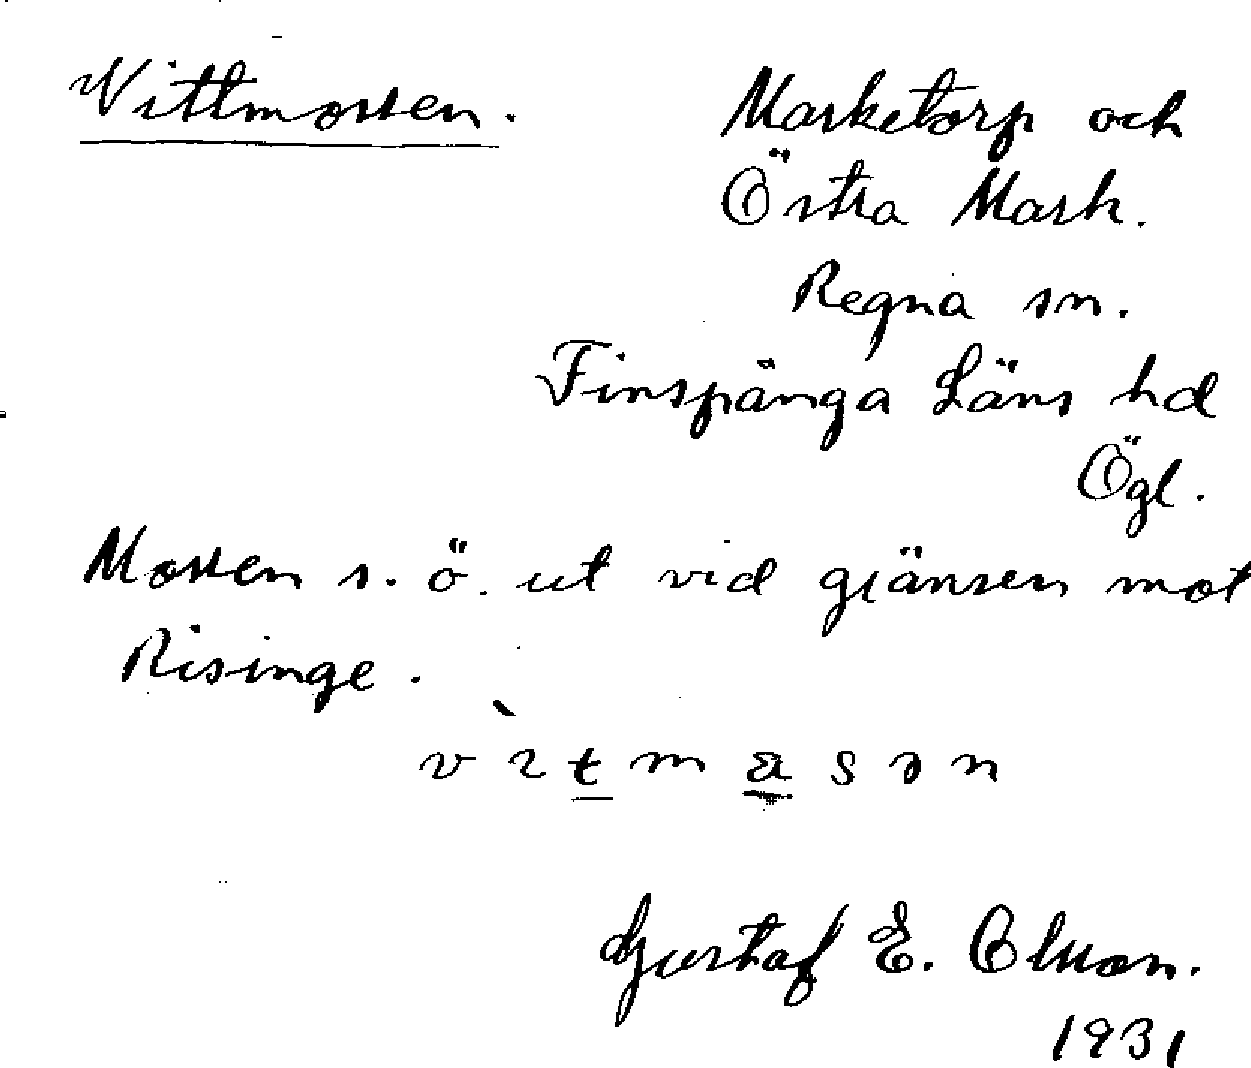 Vittmossen.
Marketorp och
Östra Mark.
Regna sn.
Finspånga Läns hd
Ögl.
Mossen s. ö. ut vid gränsen mot
Risinge.
Gustaf E. Olsson.
1931